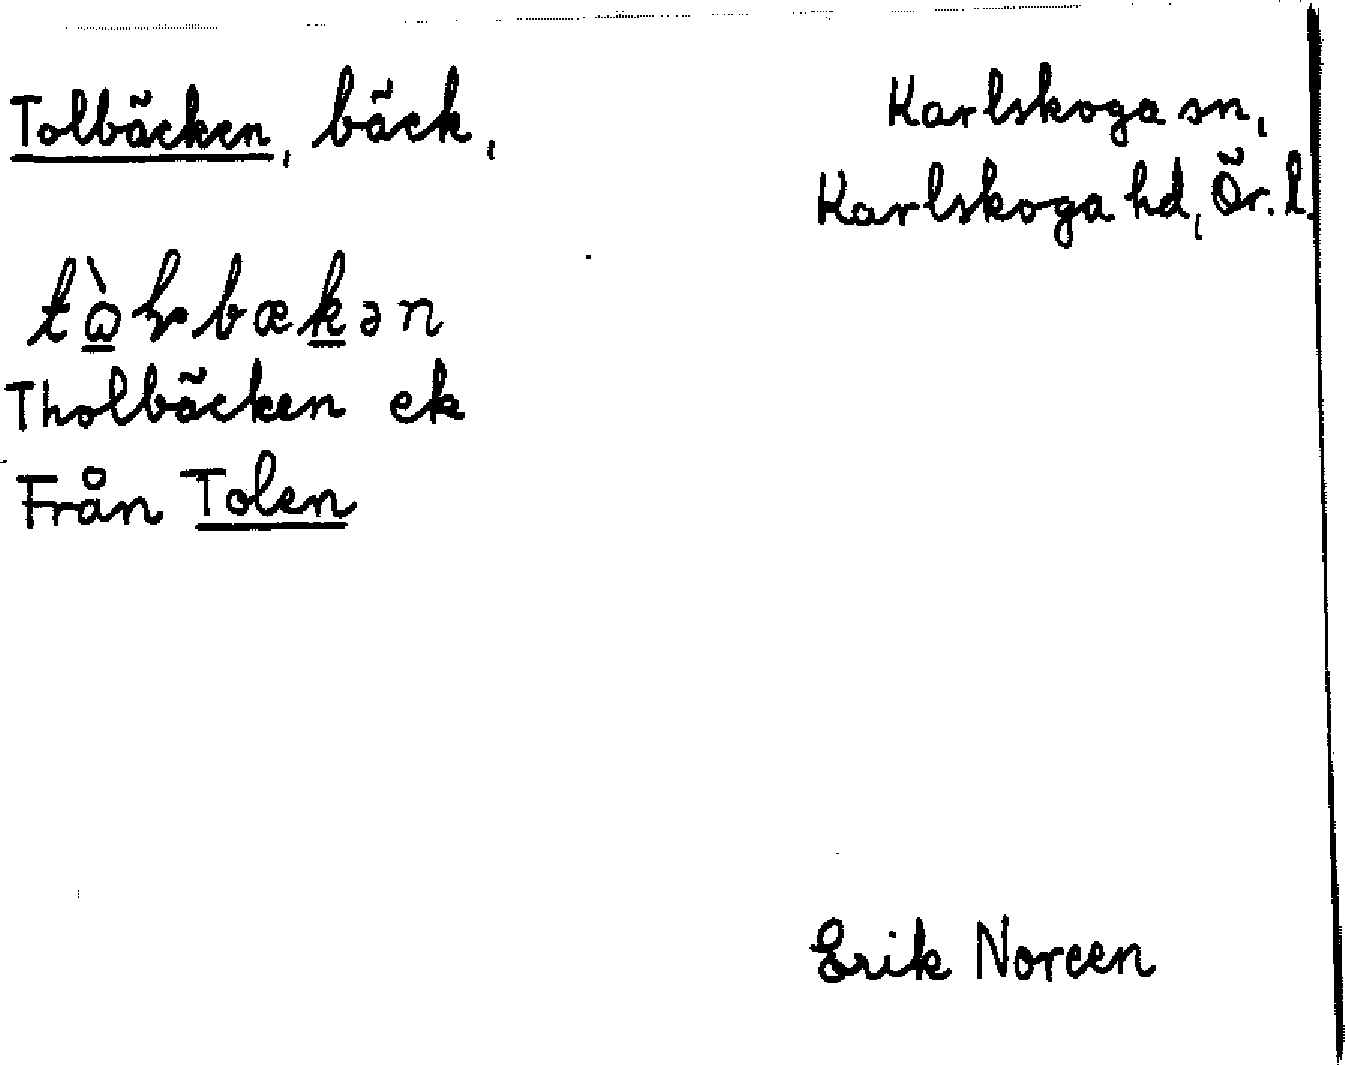 Tolbäcken, bäck,
Karlskoga sn,
Karlskoga hd, Ör. l.
Tholbäcken ek
Från Tolen
Erik Noreen